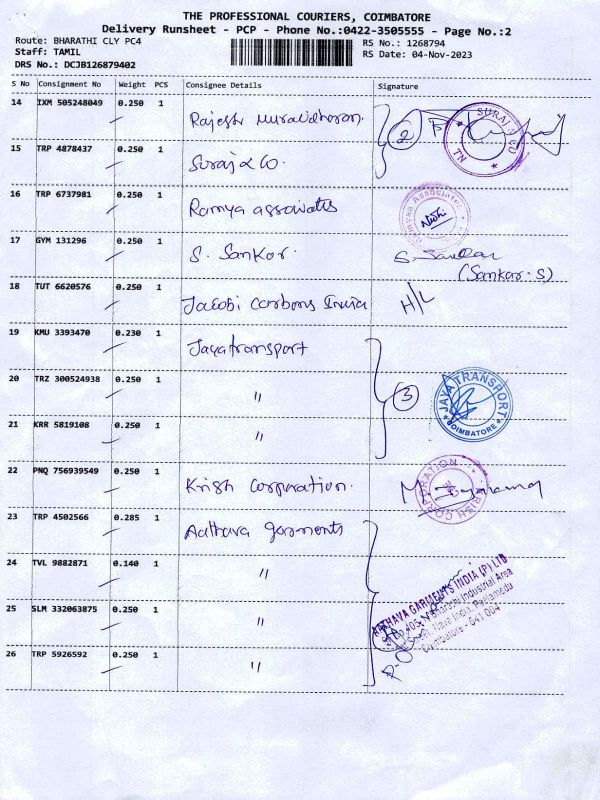 THE PROFESSIONAL COURIERS, COIMBATORE
Delivery Runsheet - PCP - Phone No.:0422-3505555 - Page No.:2
Route: BHARATHI CLY PC4
Staff: TAMIL
DRS No.: DCJB126879402
RS No.: 1268794
RS Date: 04-Nov-2023
S No Consignment No Weight PCS Consignee Details Signature
14 IXM 505248049 0.250 1 Rajesh Muralidharan.
15 TRP 4878437 0.250 1 Suraj & Co.
2
SURAJ & CO
TN
16 TRP 6737981 0.250 1 Ramya associates
Associates
Nidhi
17 GYM 131296 0.250 1 S. Sankar.
(Sankar.S)
18 TUT 6620576 0.250 1 Jacobi Carbons India H/L
19 KMU 3393470 0.230 1 Jayatransport
20 TRZ 300524938 0.250 1 "
3
JAYA TRANSPORT
COIMBATORE
21 KRR 5819108 0.250 1 "
22 PNQ 756939549 0.250 1 Krish Corporation.
KRISH CORPORATION
23 TRP 4502566 0.285 1 Aathava garments
24 TVL 9882871 0.140 1 "
AATHAVA GARMENTS INDIA (P) LTD
Industrial Area
Coimbatore - 641 004
25 SLM 332063875 0.250 1 "
26 TRP 5926592 0.250 1 "